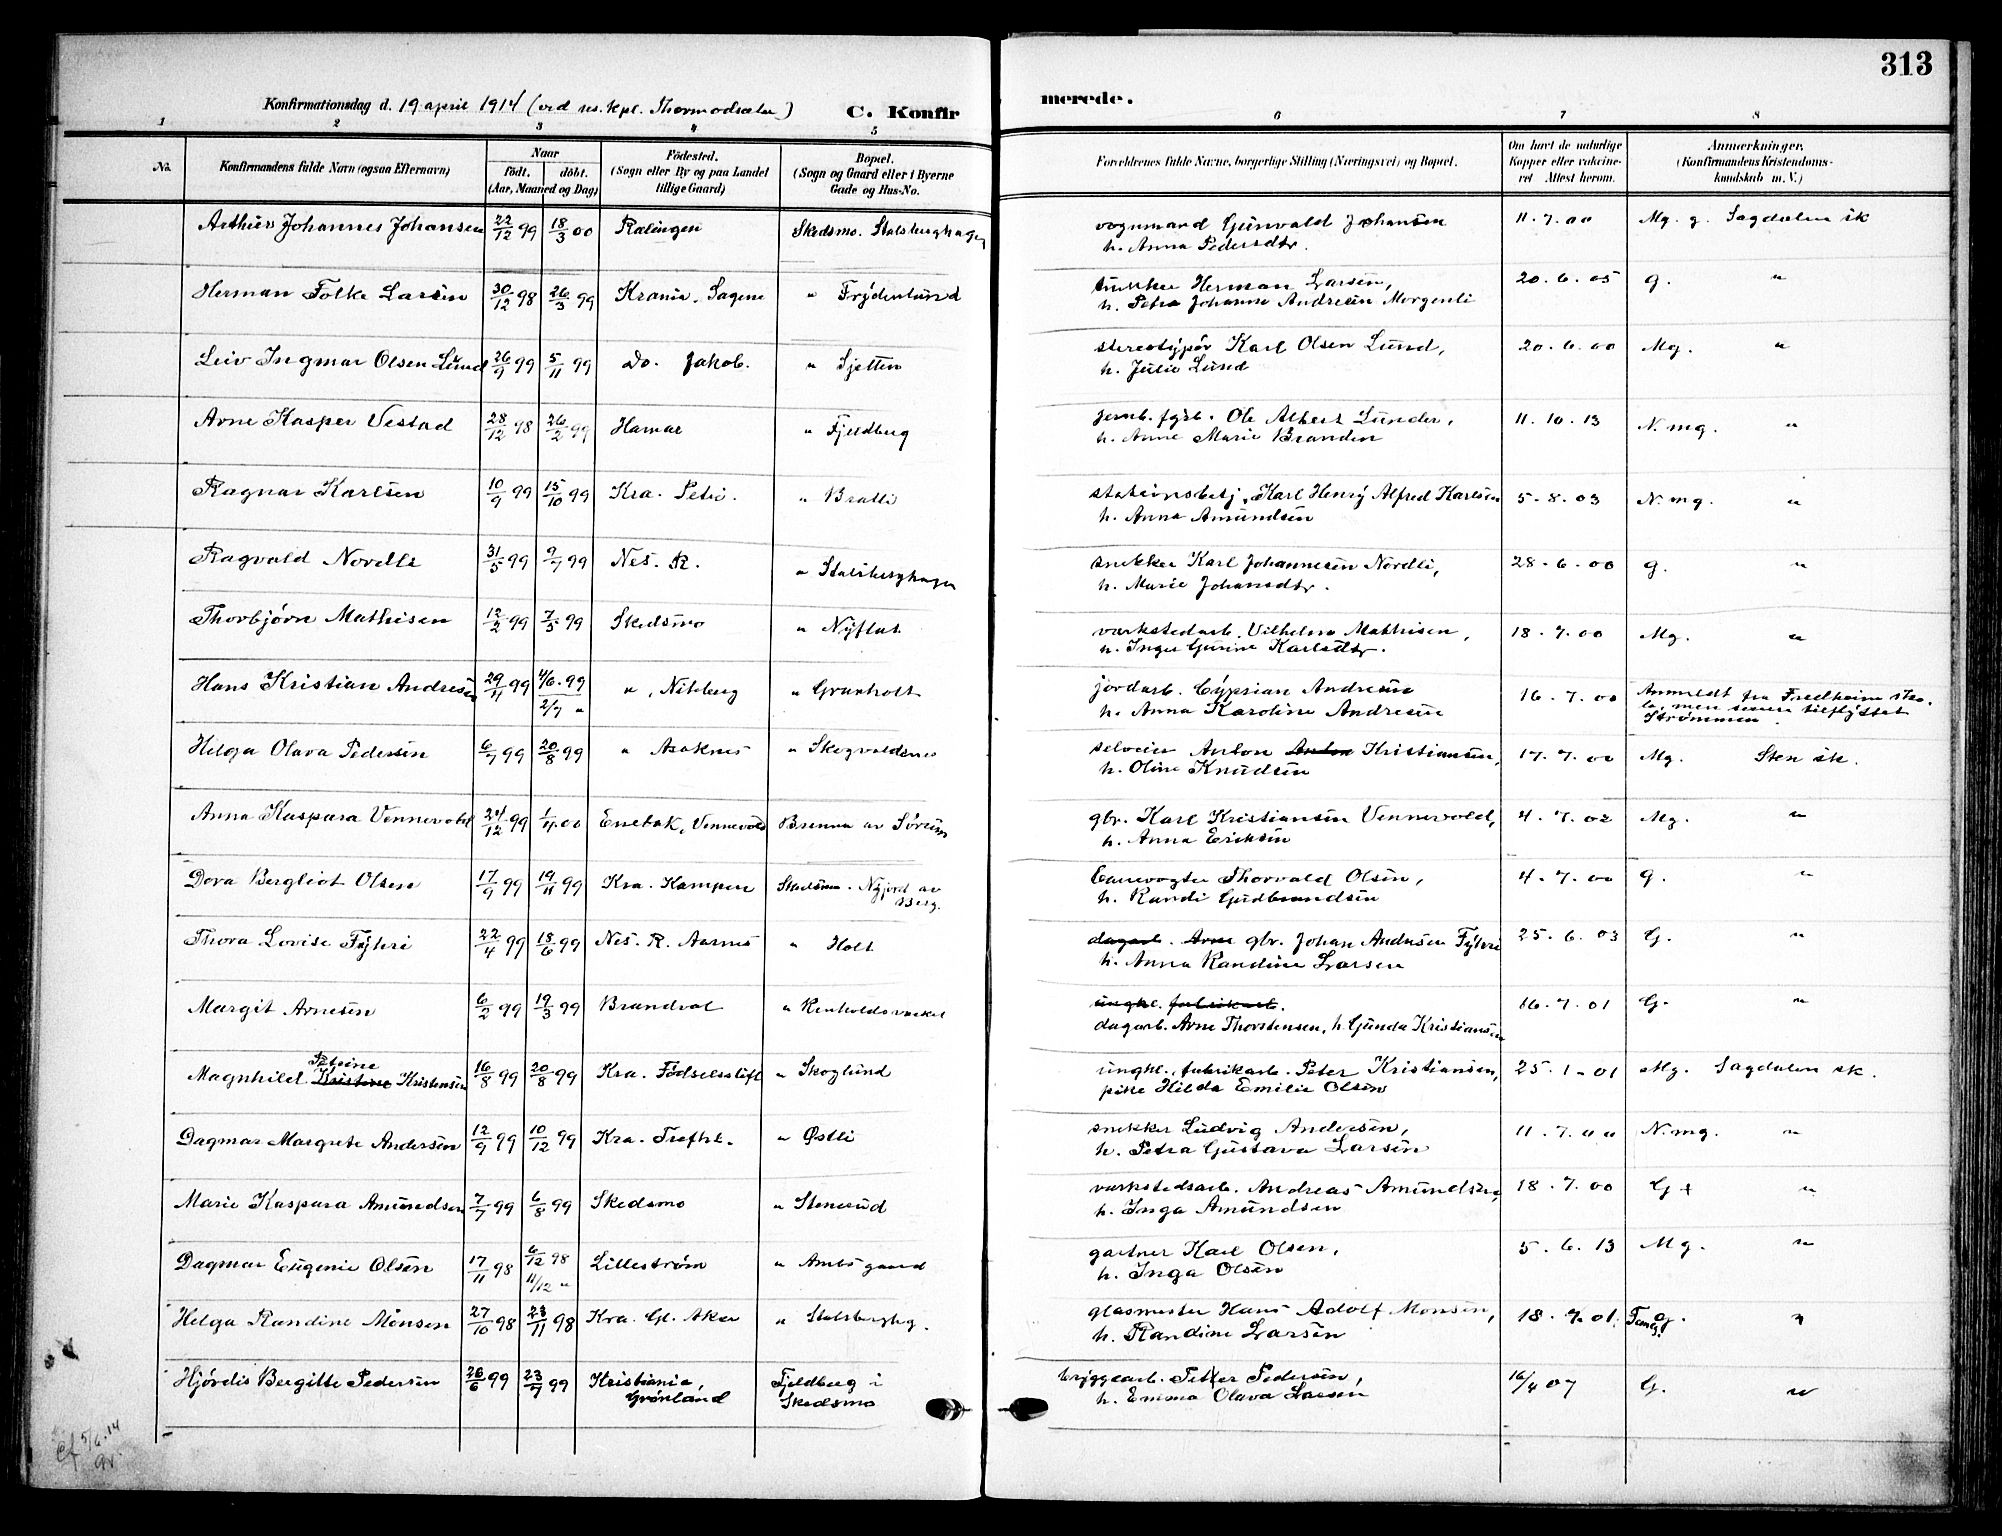 313
Konfirmationsdag d. 19 april 1914 (ved res. kpl. Thormodsæter) C. Konfirmerede.
1 2 3 4 5 6 7 8
No. Konfirmandens fulde Navn (ogsaa Efternavn) Naar født. døbt. (Aar, Maaned og Dag) Fødested. (Sogn eller By og paa Landet tillige Gaard) Bopæl. (Sogn og Gaard eller i Byerne Gade og Hus-No. Forældrenes fulde Navne, borgerlige Stilling (Næringsvei) og Bopæl. Om havt de naturlige Kopper eller vaccineret. Attest herom. Anmærkninger. (Konfirmandens Kristendomskundskab m. V.)
Arthur Johannes Johansen 22/12 99 18/3 00 Rælingen Skedsmo. Stalsberghagen vognmand Gunvald Johansen 11.7.00 Mg. g. Sagdalen sk
h. Anna Pedersdtr.
Herman Folke Larsen 30/12 98 26/3 99 Krania, Sagene " Frydenlund Herman Larsen, 20.6.05 g. "
h. Petra Johanne Andresen Morgenli
Leiv Ingmar Olsen Lund 26/9 99 5/11 99 Do. Jakob. " Sjetten stereotypør Karl Olsen Lund, 20.6.00 Mg. "
h. Julie Lund
Arne Kasper Vestad 28/12 98 26/2 99 Hamar " Fjeldberg jernb. fyrb. Ole Albert Lunder, 11.10.13 N. mg. "
h. Anne Marie Branden
Ragnar Karlsen 10/9 99 15/10 99 Kra. Petri. " Bratli stationsbetj. Karl Henry Alfred Karlsen 5.8.03 N. mg. "
h. Anna Amundsen
Ragvald Nordli 31/5 99 9/7 99 Nes. R. " Stalsberghagen snekker Karl Johannesen Nordli, 28.6.00 g. "
h. Marie Johansdtr.
Thorbjørn Mathisen 12/2 99 7/5 99 Skedsmo " Nyflat værkstedarb. Vilhelm Mathisen, 18.7.00 Mg. "
h. Inger Gurine Karlsdtr.
Hans Kristian Andresen 29/11 99 4/6.99 2/7 " ", Niteberg " Granholt jordarb. Cyprian Andresen 16.7.00 Anmeldt fra Fredheim sko-
h. Anna Karoline Andresen le, men senere tilflyttet
Strømmen.
Helga Olava Pedersen 6/7 99 20/8 99 " Aaknes " Skogvoldsnes selveier Anton Anton Kristiansen, 17.7.00 Mg. Sten sk.
h. Oline Knudsen
Anna Kaspara Vennevold 24/12 99 1/4.00 Enebak, Vennevold Brenna av Sørum gbr. Karl Kristiansen Vennevold, 4.7.02 Mg. "
h. Anna Eriksen
Dora Bergliot Olsen 17/9 99 19/11 99 Kra. Kampen Skedsmo. Nyjord av Berg. banevogter Thorvald Olsen, 4.7.00 g. "
h. Randi Gudbrandsen
Thora Lovise Fyhri 22/4 99 18/6 99 Nes. R. Aarnes " Holt dagarb. Arne gbr. Johan Andersen Fyhri 25.6.03 G. "
h. Anna Randine Larsen
Margit Arnesen 6/2 99 19/3 99 Brandval " ungkl. fabrikarb. 16.7.01 G. "
dagarb. Arne Thorstensen, h. Gunda Kristiansen
Petrine
Magnhild Kristine Kristensen 16/8 99 20/8 99 Kra. Fødselsstift " Skoglund ungkl., fabrikarb. Peter Kristiansen, 25.1.01 Mg. Sagdalen sk.
pike Hilda Emilie Olsen
Dagmar Margrete Andersen 12/9 99 10/12 99 Kra. Trefht. " Østli snekker Ludvig Andersen, 11.7.00 N. mg. "
h. Petra Gustava Larsen
Marie Kaspara Amundsen 7/7 99 6/8 99 Skedsmo " Stensrud værkstedsarb. Andreas Amundsen, 18.7.00 G + "
h. Inga Amundsen
Dagmar Eugenie Olsen 17/11 98 6/12 98 11/12 " Lillestrøm " Amtsgaard gartner Karl Olsen, 5.6.13 Mg. "
h. Inga Olsen
Helga Randine Monsen 27/10 98 23/11 98 Kra. Gl. Aker " Stalsberghg. glasmester Hans Adolf Monsen, 18.7.01. Temg. G. "
h. Randine Larsen
Hjørdis Bergitte Pedersen 26/6 99 23/7 99 Kristiania, Grønland Fjeldberg i Skedsmo bryggearb. Petter Pedersen, 16/4 07 G. "
h. Emma Olava Larsen
5/6.14